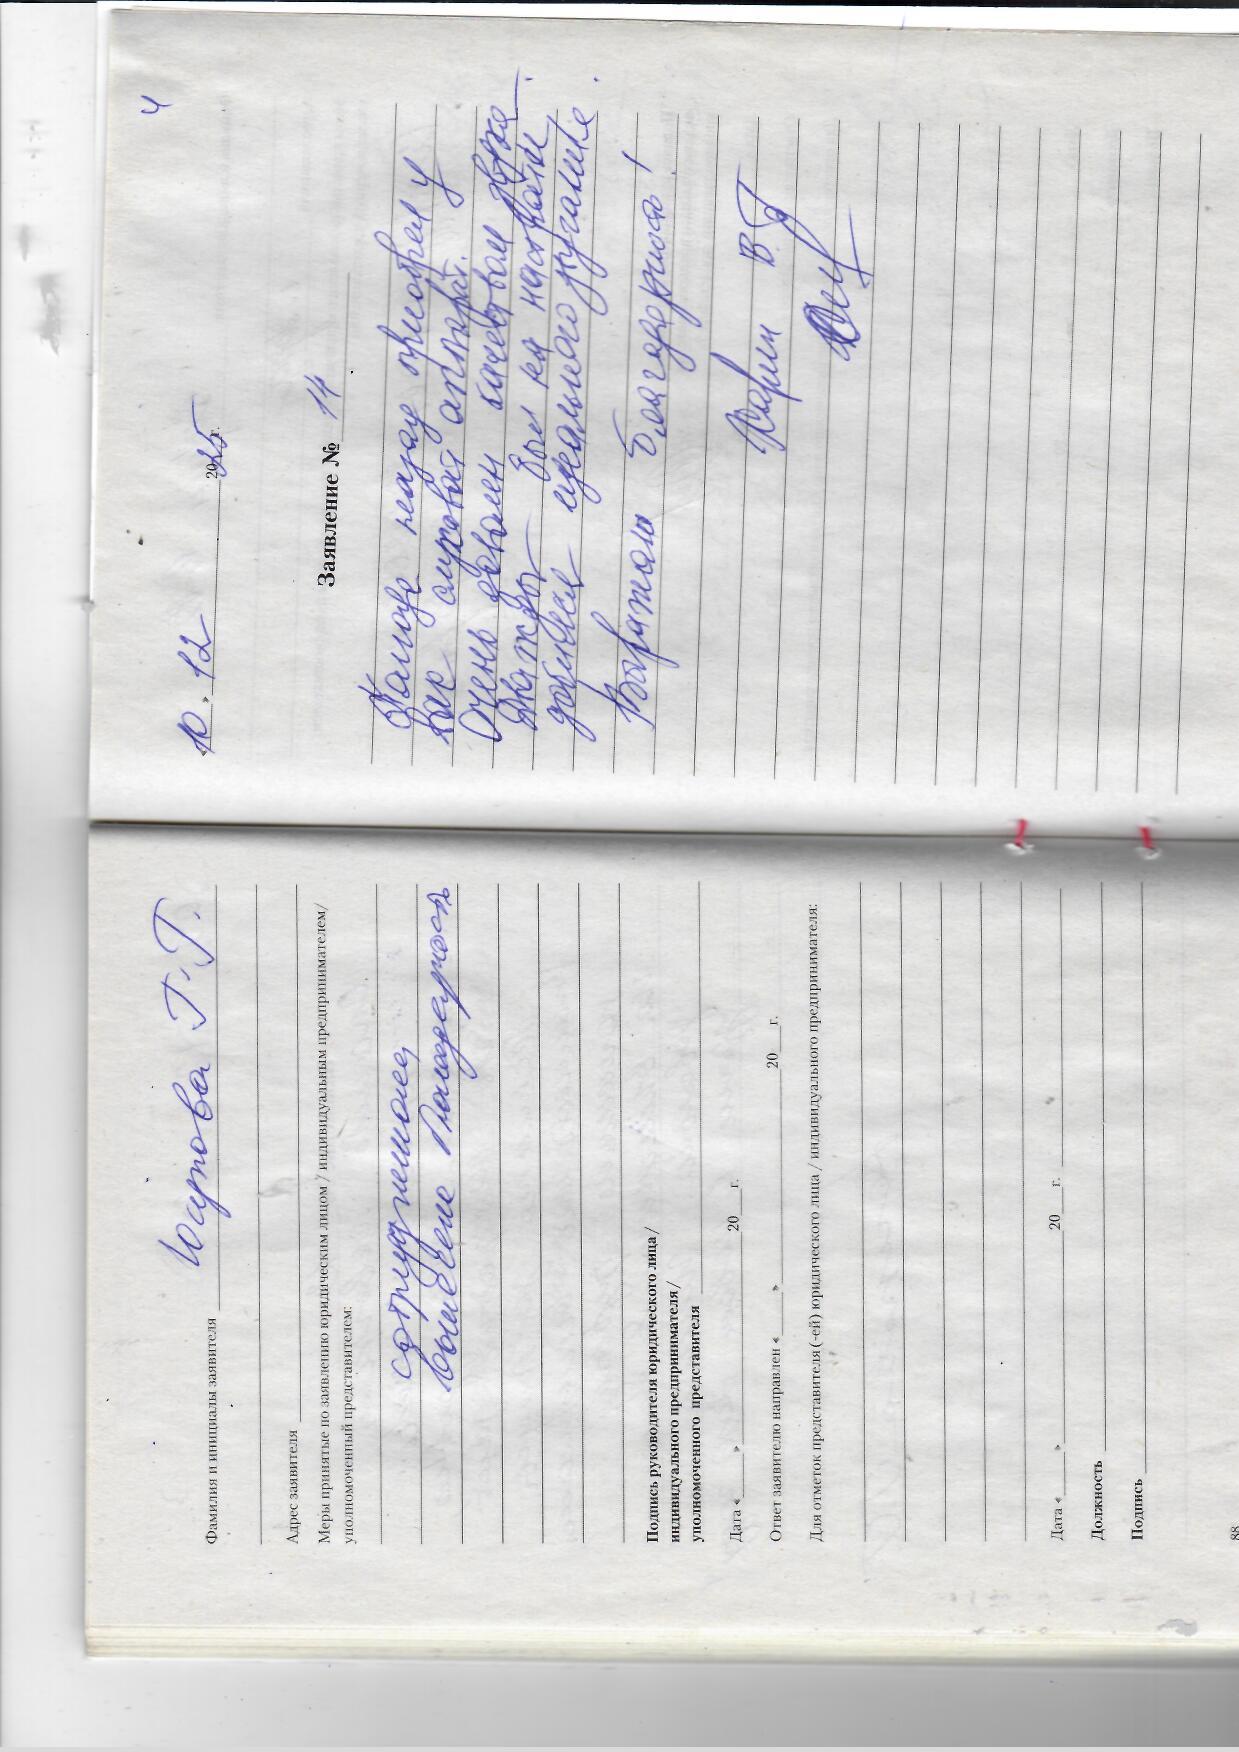 Фамилия и инициалы заявителя Юсупова Г.Г.
Адрес заявителя
Меры принятые по заявлению юридическим лицом / индивидуальным предпринимателем/
уполномоченный представителем:
сотруднице
вынесена благодарность
Подпись руководителя юридического лица /
индивидуального предпринимателя /
уполномоченного представителя
Дата « » 20 г.
Ответ заявителю направлен « » 20 г.
Для отметок представителя (-ей) юридического лица / индивидуального предпринимателя:
Дата « » 20 г.
Должность
Подпись
88
ч
«10 » 12 2025г.
Заявление № 14
назад приобрел у
вас слуховой аппарат.
Очень доволен качеством звука.
Дважды был на настройке
добился идеального звучания.
Выражаю благодарность!
Карим В.Г